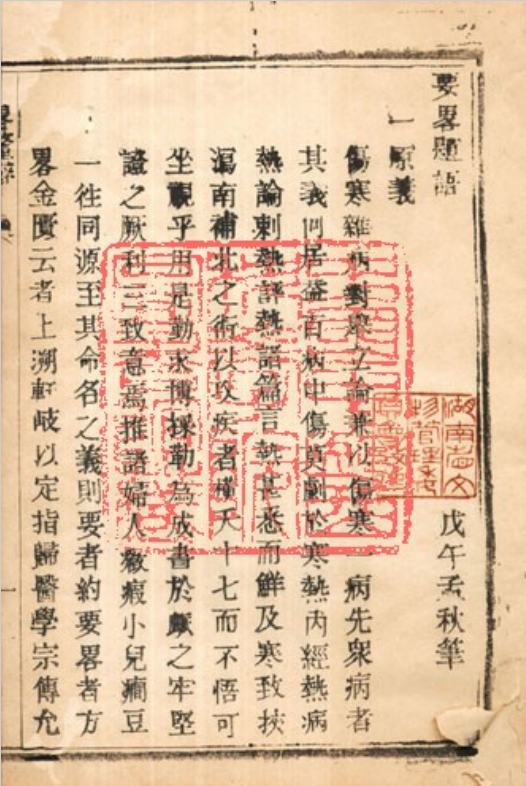 要畧題語
戊午孟秋筆
一原義
傷寒雜病對舉立論兼以傷寒一病先衆病者
其義何居蓋百病中傷莫劇於寒熱內經熱病
熱論刺熱評熱諸篇言熱甚悉而鮮及寒致挾
瀉南補北之術以攻疾者橫夭十七而不悟可
坐觀乎用是勤求博採勒為成書於之牢堅
證之厥利三致意焉推諸婦人癥瘕小兒癇豆
一徃同源至其命名之義則要者約要畧者方
畧金匱云者上溯軒岐以定指歸醫學宗傳允
湖南省文
物管理委